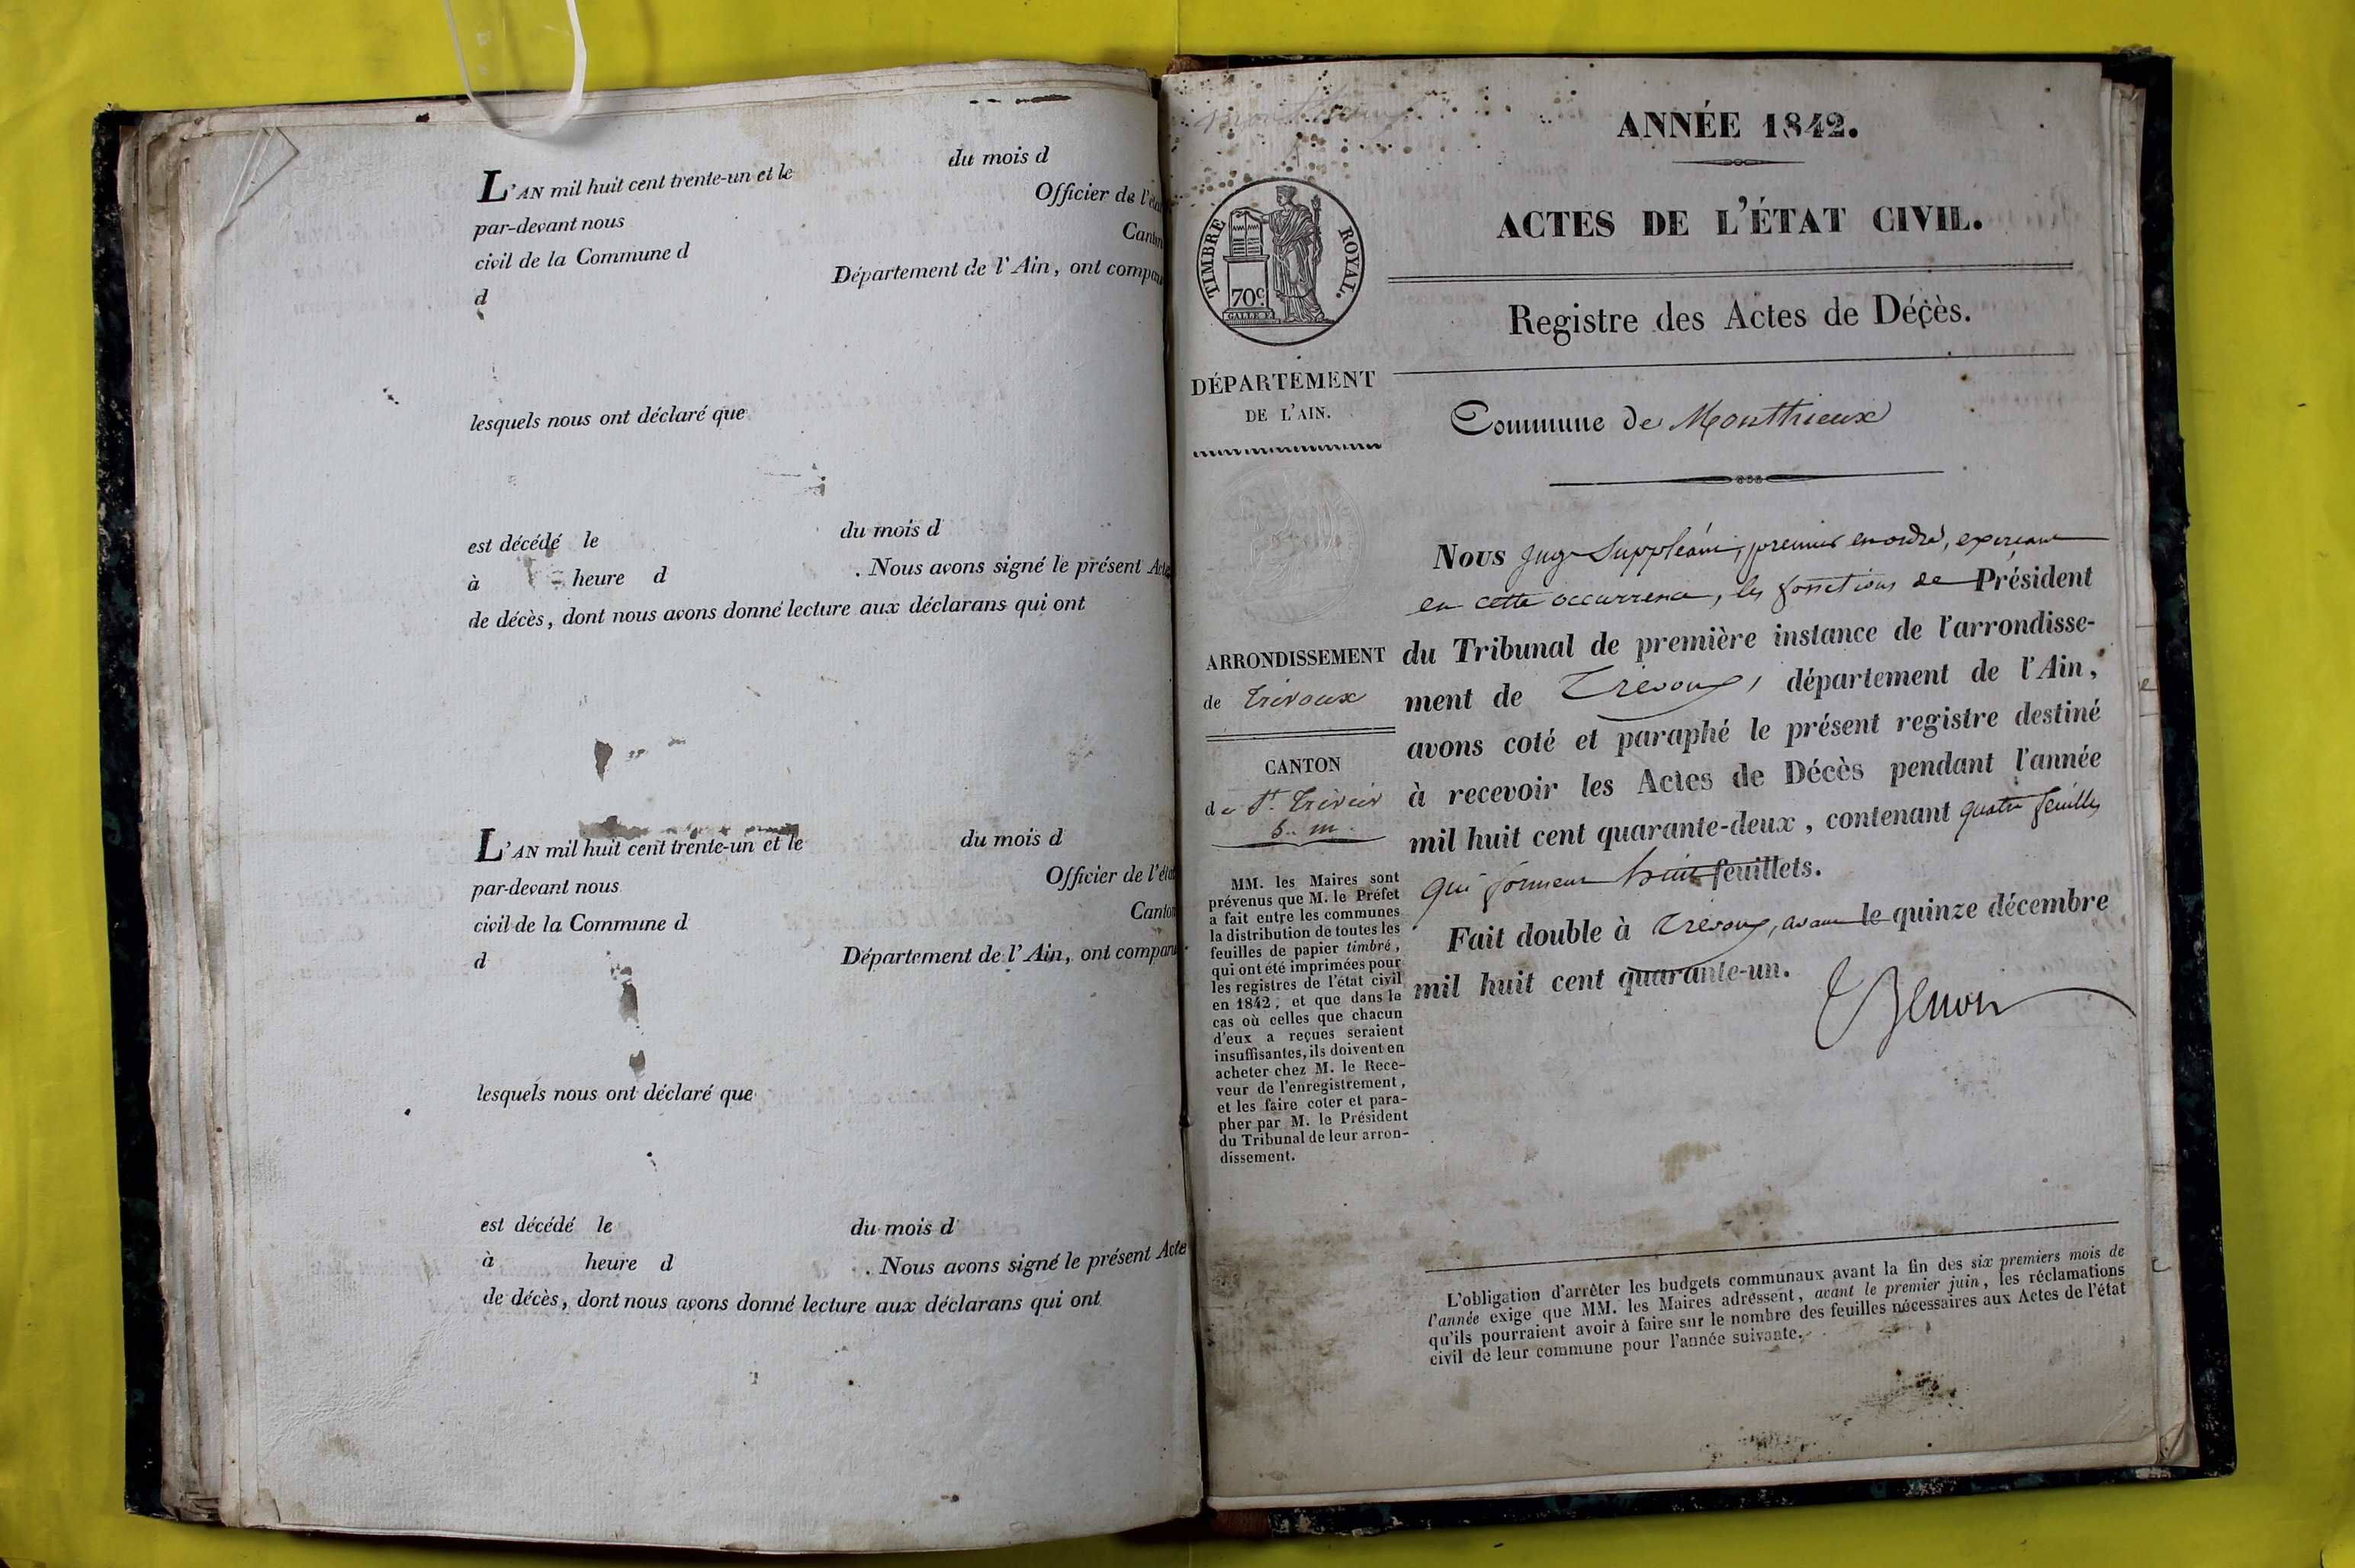 L'AN mil huit cent trente-un et le du mois d
par-devant nous Officier de l'état
civil de la Commune d Canton
d Département de l'Ain, ont comparu
lesquels nous ont déclaré que
est décédé le du mois d
à heure d . Nous avons signé le présent Acte
de décès, dont nous avons donné lecture aux déclarans qui ont
L'AN mil huit cent trente-un et le du mois d
par-devant nous Officier de l'état
civil de la Commune d Canton
d Département de l'Ain, ont comparu
lesquels nous ont déclaré que
est décédé le du mois d
à heure d . Nous avons signé le présent Acte
de décès, dont nous avons donné lecture aux déclarans qui ont
ANNÉE 1842.
ACTES DE L'ÉTAT CIVIL.
TIMBRE ROYAL.
70c
Registre des Actes de Décès.
DÉPARTEMENT
DE L'AIN.
Commune de Monthieux
Nous Juge Suppléant, premier en ordre, exerçant
en cette occurrence, les fonctions de Président
du Tribunal de première instance de l'arrondisse-
ment de Trévoux, département de l'Ain,
avons coté et paraphé le présent registre destiné
à recevoir les Actes de Décès pendant l'année
mil huit cent quarante-deux, contenant quatre feuilles
qui forment huit feuillets.
Fait double à Trévoux, avant le quinze décembre
mil huit cent quarante-un.
ARRONDISSEMENT
de Trévoux
CANTON
de St. Trivier
s. m.
MM. les Maires sont
prévenus que M. le Préfet
a fait entre les communes
la distribution de toutes les
feuilles de papier timbré,
qui ont été imprimées pour
les registres de l'état civil
en 1842, et que dans le
cas où celles que chacun
d'eux a reçues seraient
insuffisantes, ils doivent en
acheter chez M. le Rece-
veur de l'enregistrement,
et les faire coter et para-
pher par M. le Président
du Tribunal de leur arron-
dissement.
L'obligation d'arrêter les budgets communaux avant la fin des six premiers mois de
l'année exige que MM. les Maires adressent, avant le premier juin, les réclamations
qu'ils pourraient avoir à faire sur le nombre des feuilles nécessaires aux Actes de l'état
civil de leur commune pour l'année suivante.